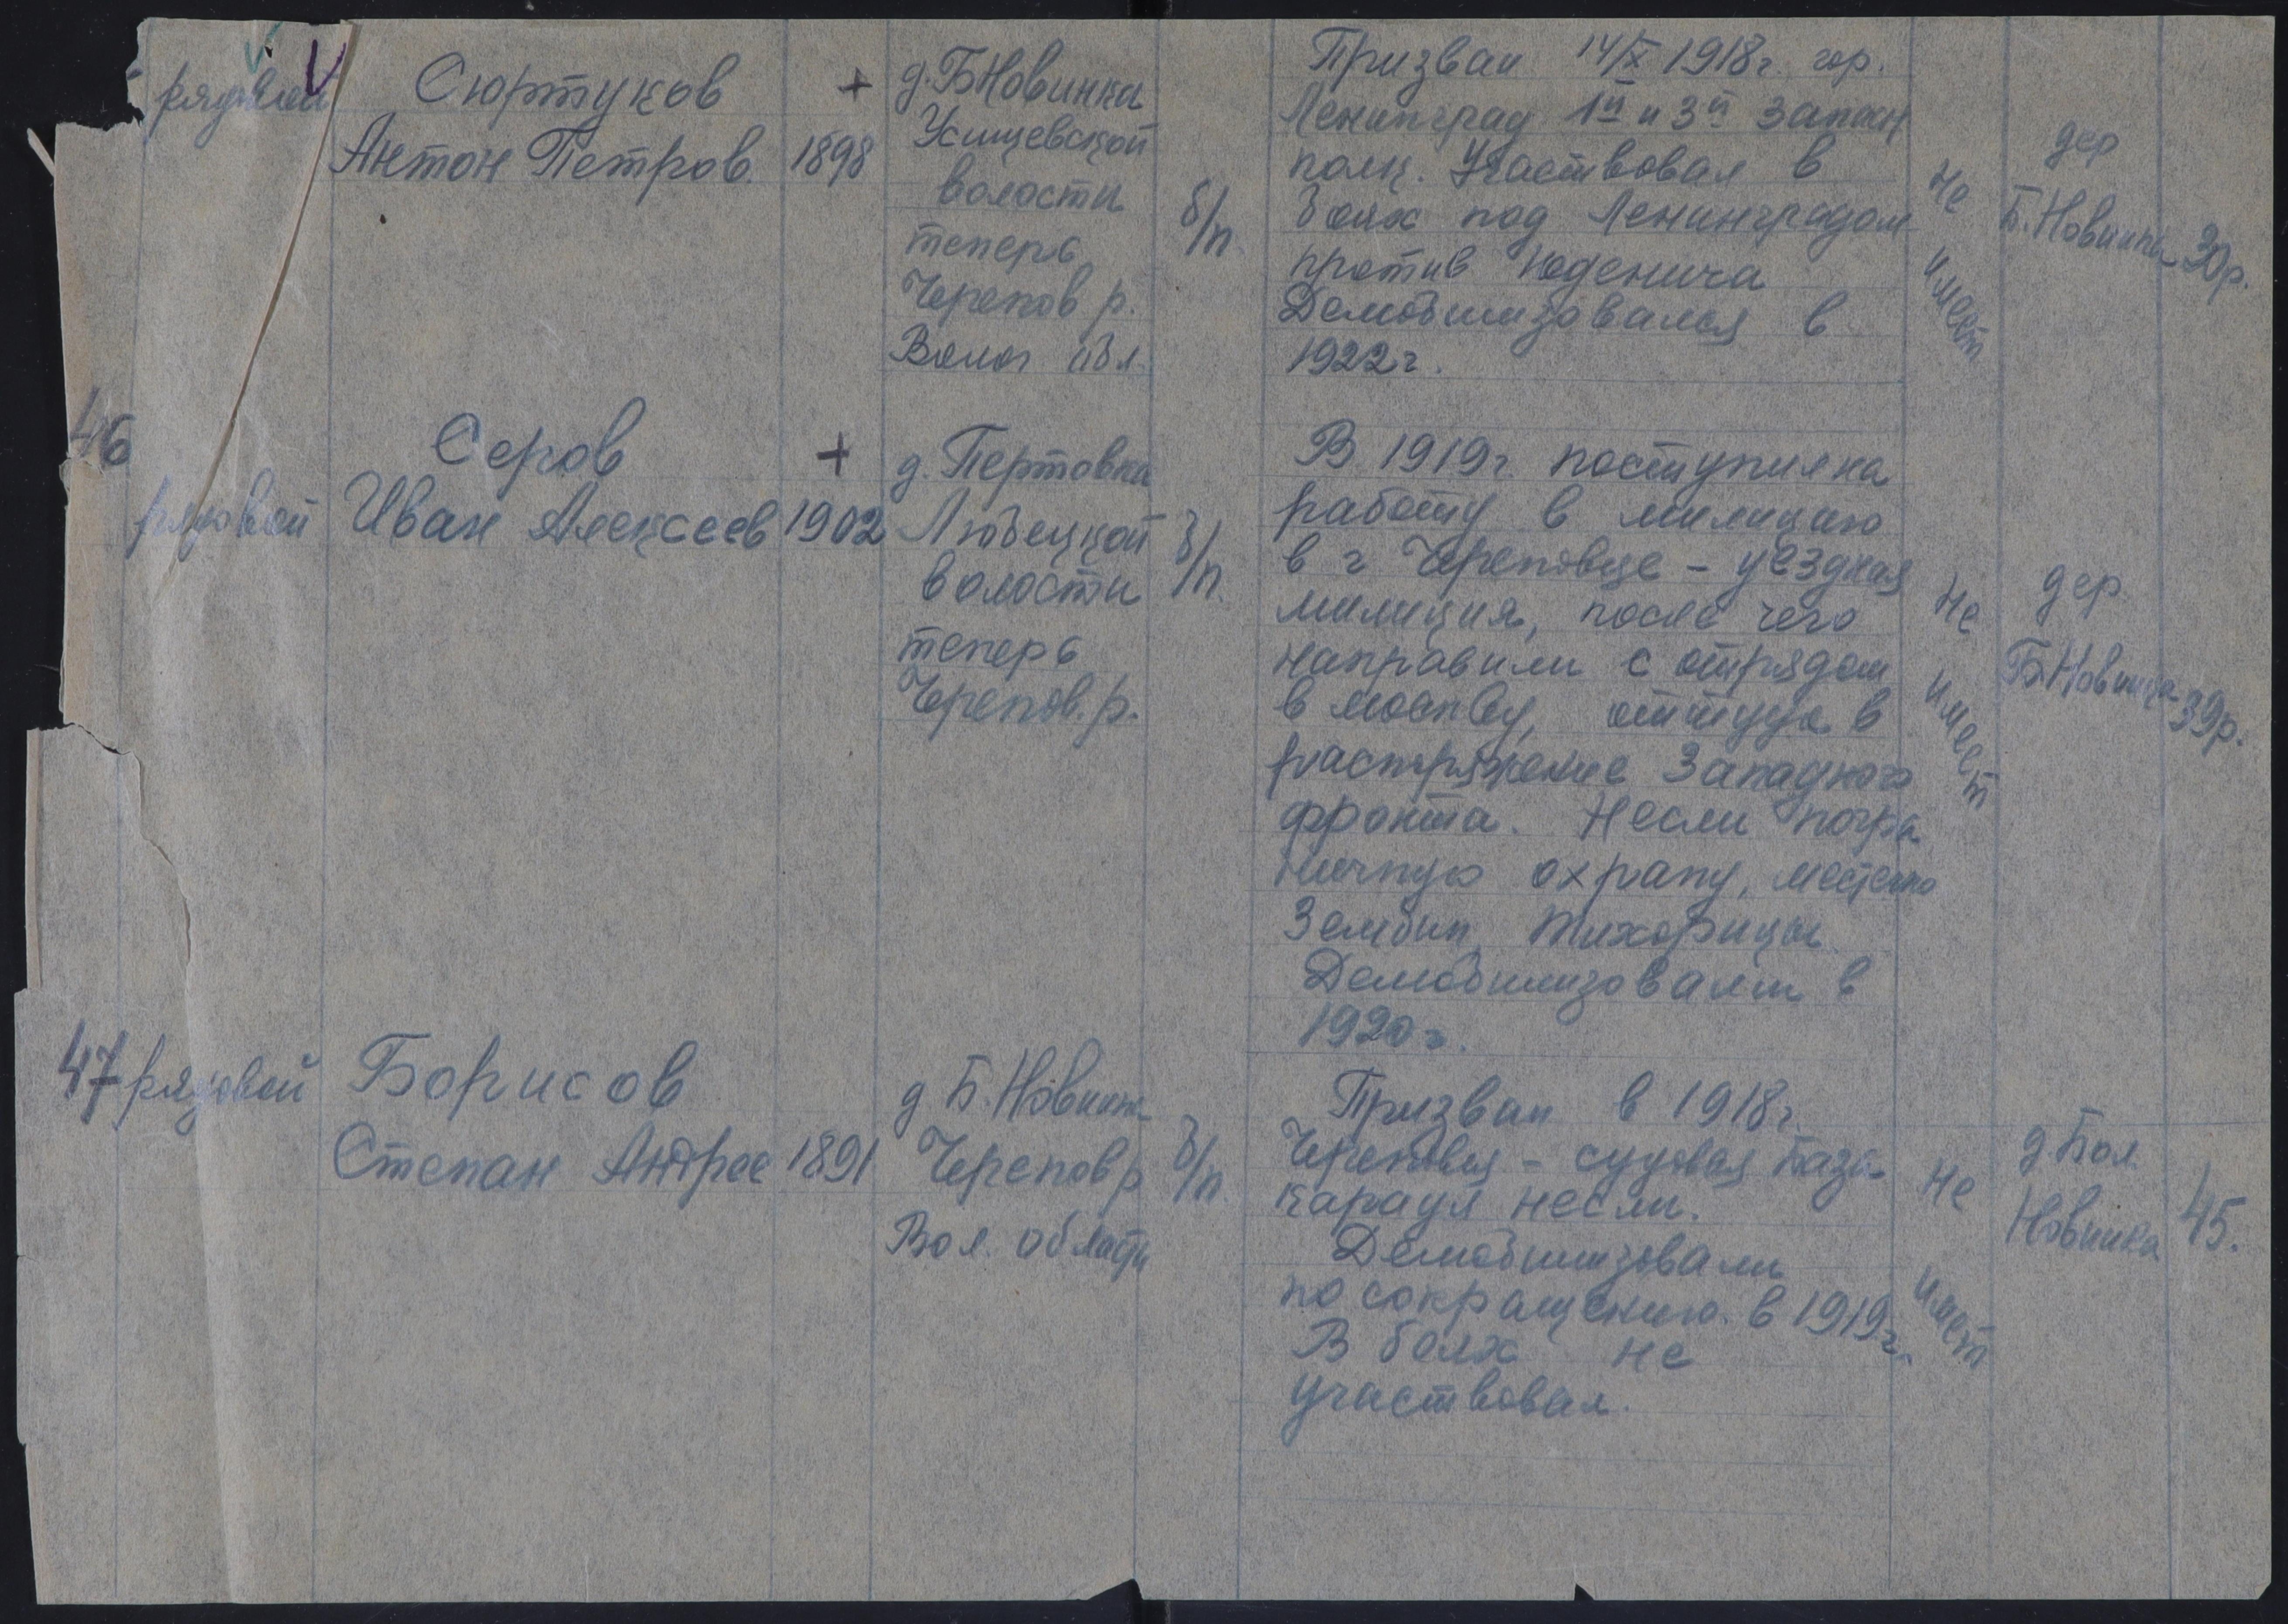 рядовой
Сюртуков
Антон Петров.
+
1898
д. Б Новинка
Усищевской
волости
теперь
Черепов р.
Волог обл.
б/п
Призван 14/X 1918г. гор.
Ленинград 1й и 3й запасн
полк. Участвовал в
боях под Ленинградом
против Юденича
Демобилизовался в
1922г.
не
имеет
дер
Б. Новинка
30р.
46
рядовой
Серов
Иван Алексеев
+
1902
д. Пертовка
Любецкой
волости
теперь
Черепов. р.
б/п.
В 1919г. поступил на
работу в милицию
в г Череповце - уездная
милиция, после чего
направили с отрядом
в москву, оттуда в
распоряжение Западного
фронта. Несли погра
ничную охрану, местечко
Зембин,
Демобилизовали в
1920г.
не
имеет
дер.
Б. Новинка
39р.
47
рядовой
Борисов
Степан Андрее
1891
д Б. Новинка
Черепов р
Вол. области
б/п.
Призван в 1918г.
Череповец - судовая база
караул несли.
Демобилизовали
по сокращению. в 1919г.
В боях не
участвовал.
не
имеет
д Бол.
Новинка
45.